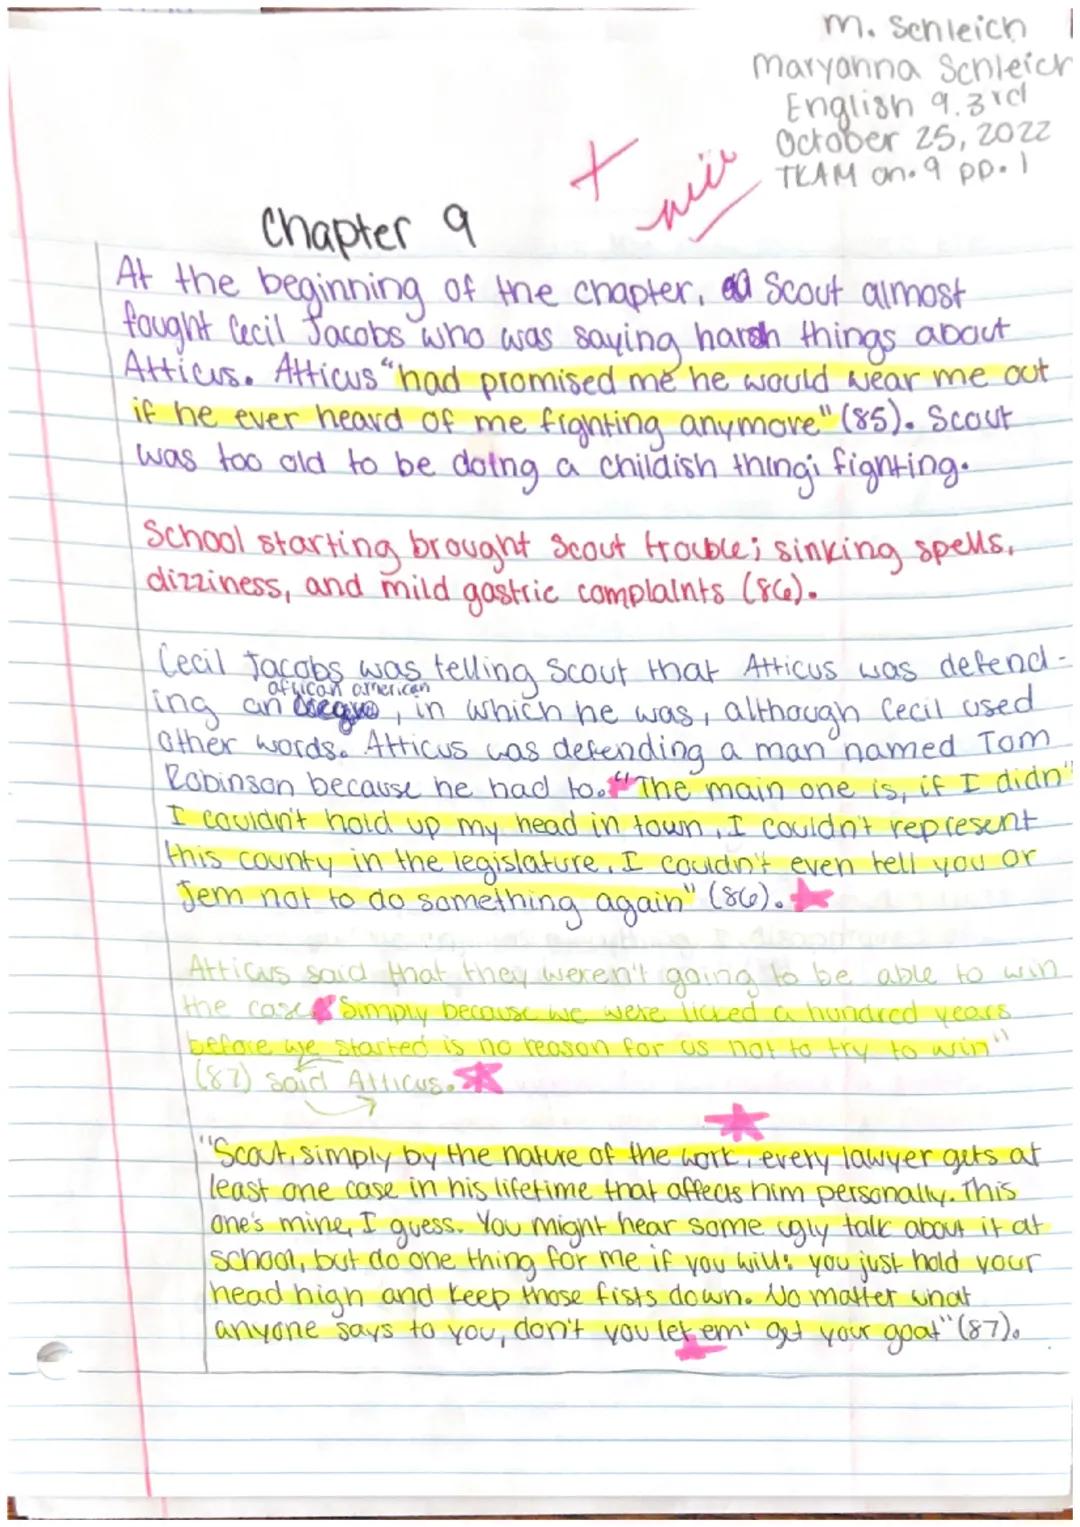 M. Schleich
Maryanna Schleich
English 9.3rd
October 25, 2022
TKAM ch. 9 pp. 1
+
Chapter 9
At the beginning of the chapter, Scout almost
fought Cecil Jacobs who was saying harsh things about
Atticus. Atticus "had promised me he would wear me out
if he ever heard of me fighting anymore" (85). Scout
was too old to be doing a childish thing; fighting.
School starting brought Scout trouble; sinking spells,
dizziness, and mild gastric complaints (86).
Cecil Jacobs was telling Scout that Atticus was defend-
african american
ing an , in which he was, although Cecil used
other words. Atticus was defending a man named Tom
Robinson because he had to. "The main one is, if I didn'
I couldn't hold up my head in town, I couldn't represent
this county in the legislature, I couldn't even tell you or
Jem not to do something again" (86).
Atticus said that they weren't going to be able to win
the case "Simply because we were licked a hundred years
before we started is no reason for us not to try to win"
(87) said Atticus.
"Scout, simply by the nature of the work, every lawyer gets at
least one case in his lifetime that affects him personally. This
one's mine, I guess. You might hear some ugly talk about it at
school, but do one thing for me if you will: you just hold your
head high and keep those fists down. No matter what
anyone says to you, don't you let em' get your goat" (87).